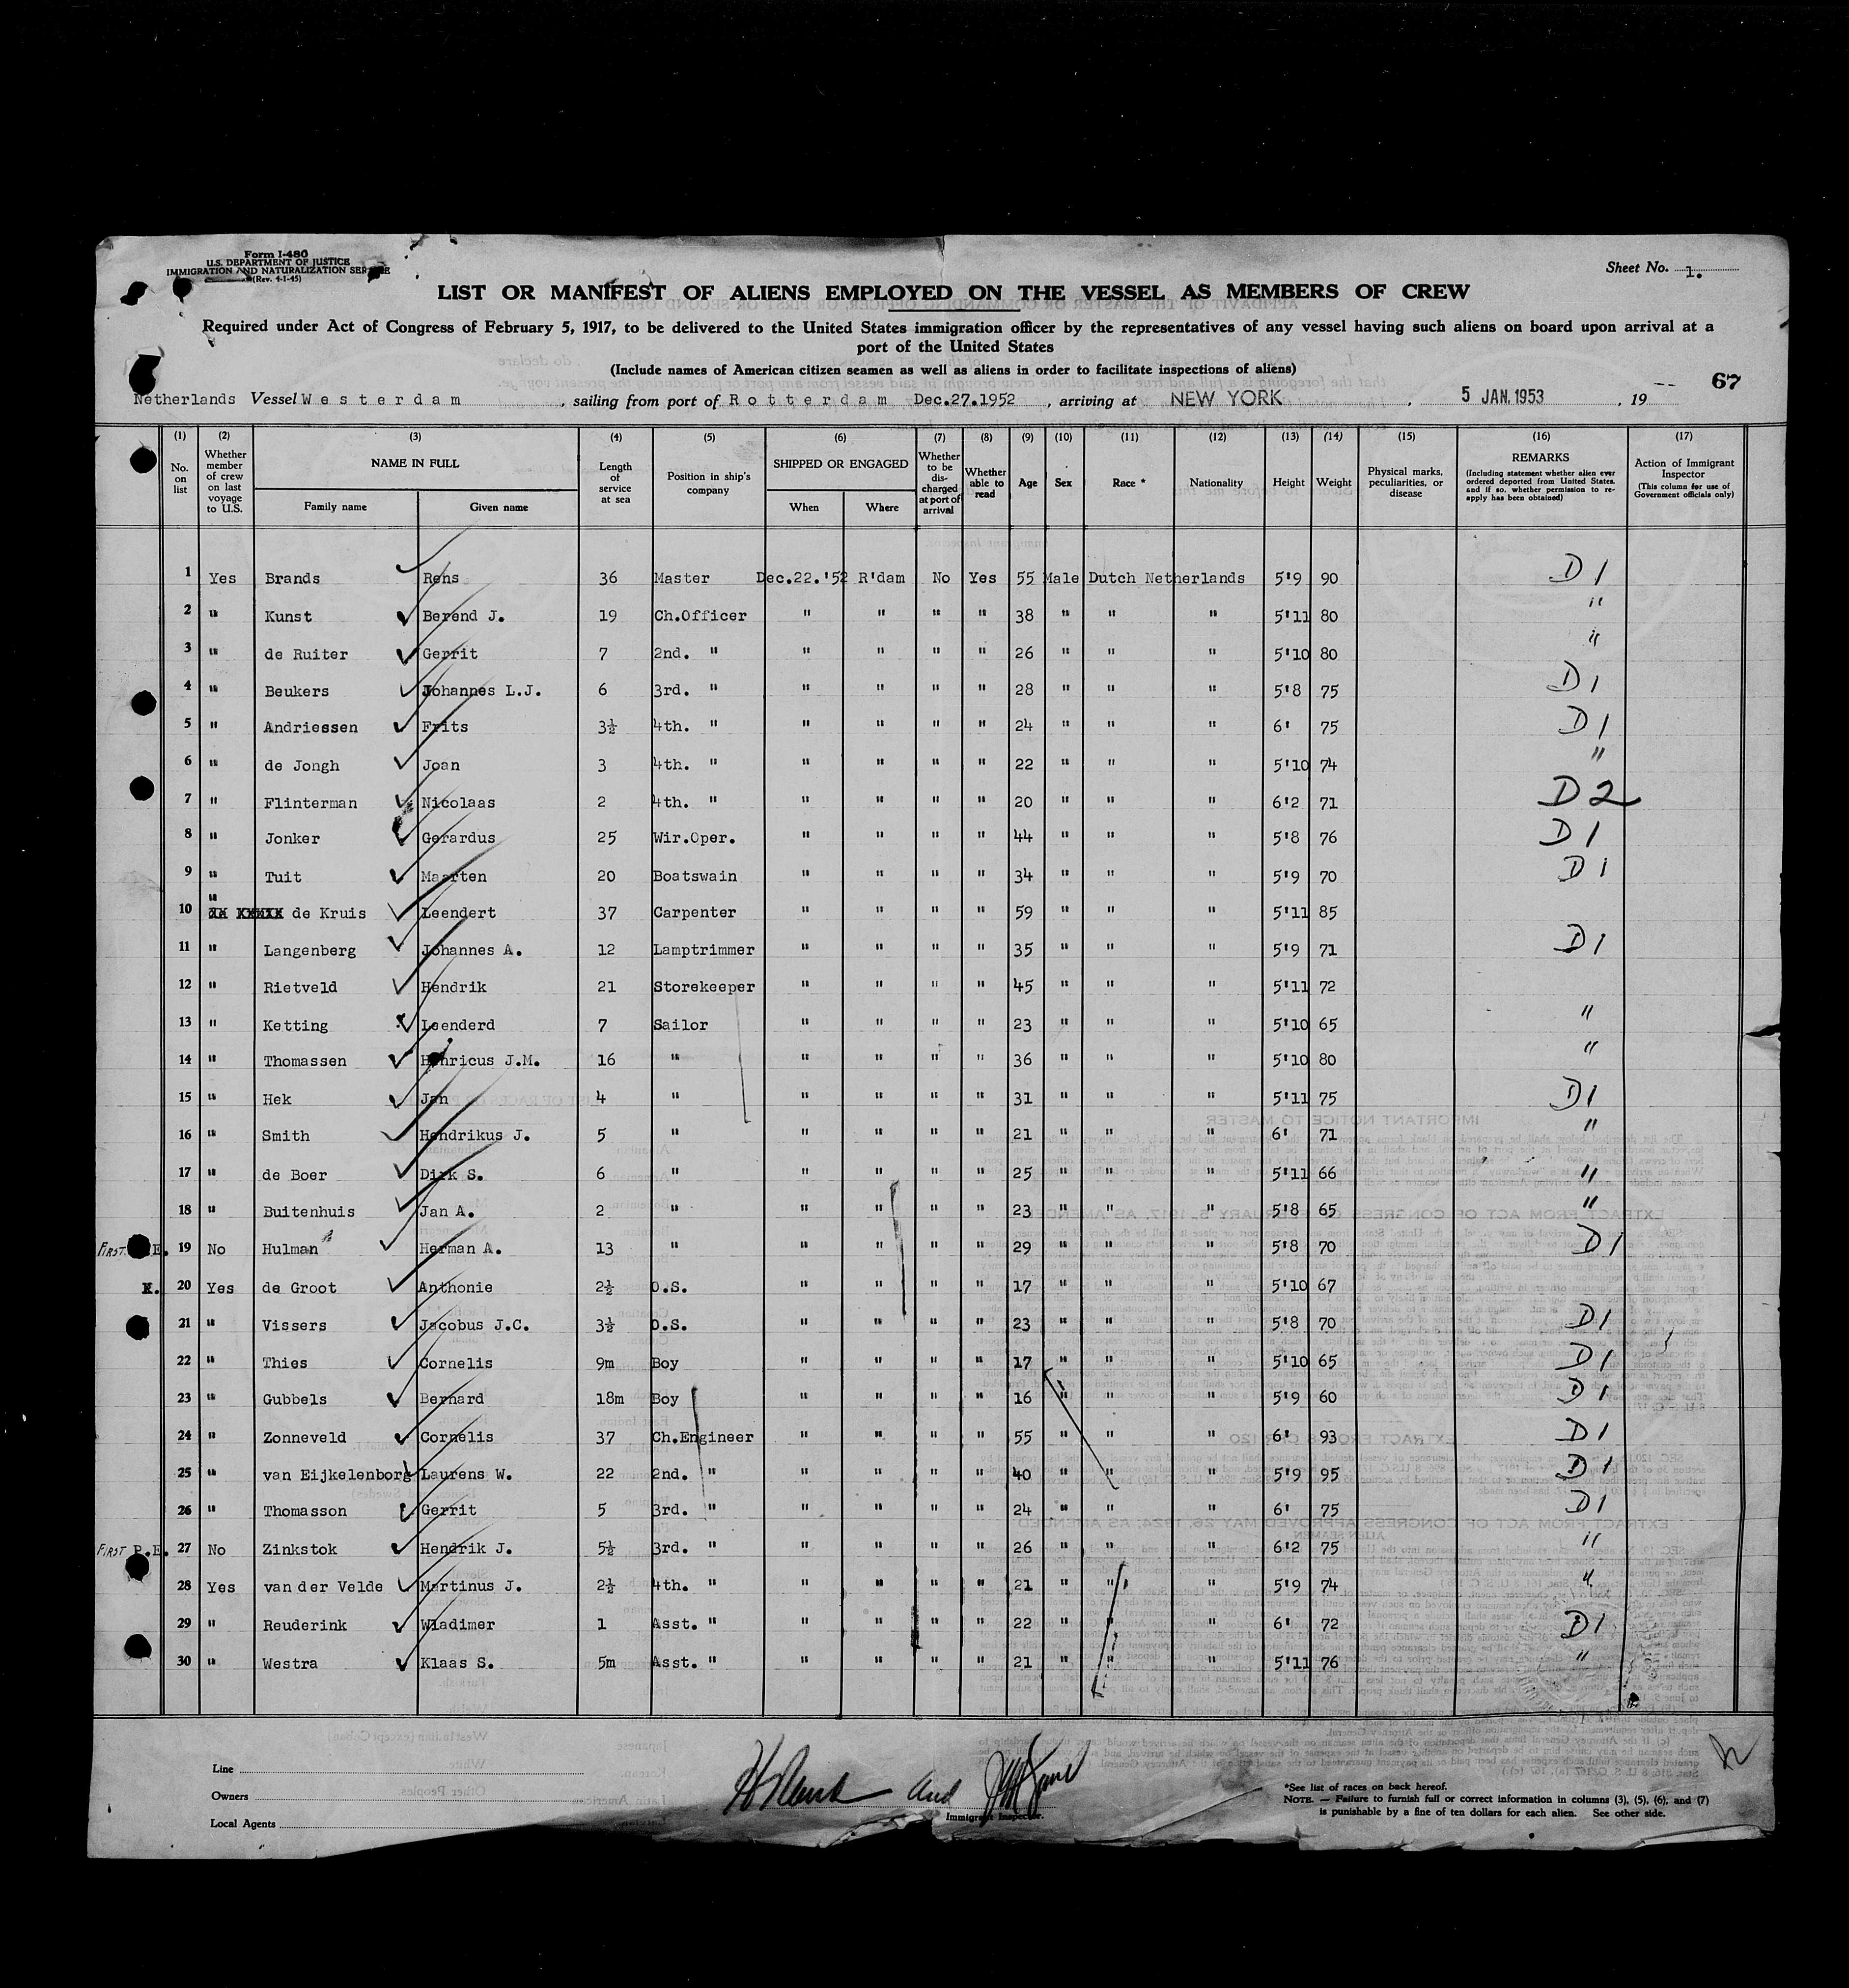 Form I-480
U.S. DEPARTMENT OF JUSTICE
IMMIGRATION AND NATURALIZATION SERVICE
(Rev. 4-1-45)
Sheet No. 1.
LIST OR MANIFEST OF ALIENS EMPLOYED ON THE VESSEL AS MEMBERS OF CREW
Required under Act of Congress of February 5, 1917, to be delivered to the United States immigration officer by the representatives of any vessel having such aliens on board upon arrival at a
port of the United States
(Include names of American citizen seamen as well as aliens in order to facilitate inspections of aliens)
67
Netherlands Vessel Westerdam, sailing from port of Rotterdam Dec.27.1952, arriving at NEW YORK, 5 JAN. 1953, 19 --
(1) (2) (3) (4) (5) (6) (7) (8) (9) (10) (11) (12) (13) (14) (15) (16) (17)
No. on list
Whether member of crew on last voyage to U.S.
NAME IN FULL
Family name Given name
Length of service at sea
Position in ship's company
SHIPPED OR ENGAGED
When Where
Whether to be discharged at port of arrival
Whether able to read
Age Sex Race * Nationality Height Weight
Physical marks, peculiarities, or disease
REMARKS
(Including statement whether alien ever ordered deported from United States, and if so, whether permission to reapply has been obtained)
Action of Immigrant Inspector
(This column for use of Government officials only)
1 Yes Brands Rens 36 Master Dec.22.'52 R'dam No Yes 55 Male Dutch Netherlands 5'9 90 D 1
2 " Kunst Berend J. 19 Ch.Officer " " " " 38 " " " 5'11 80 "
3 " de Ruiter Gerrit 7 2nd. " " " " " 26 " " " 5'10 80 "
4 " Beukers Johannes L.J. 6 3rd. " " " " " 28 " " " 5'8 75 D 1
5 " Andriessen Frits 3½ 4th. " " " " " 24 " " " 6' 75 D 1
6 " de Jongh Joan 3 4th. " " " " " 22 " " " 5'10 74 "
7 " Flinterman Nicolaas 2 4th. " " " " " 20 " " " 6'2 71 D 2
8 " Jonker Gerardus 25 Wir.Oper. " " " " 44 " " " 5'8 76 D 1
9 " Tuit Maarten 20 Boatswain " " " " 34 " " " 5'9 70 D 1
10 " de Kruis Leendert 37 Carpenter " " " " 59 " " " 5'11 85
11 " Langenberg Johannes A. 12 Lamptrimmer " " " " 35 " " " 5'9 71 D 1
12 " Rietveld Hendrik 21 Storekeeper " " " " 45 " " " 5'11 72
13 " Ketting Leenderd 7 Sailor " " " " 23 " " " 5'10 65 "
14 " Thomassen Henricus J.M. 16 " " " " " 36 " " " 5'10 80 "
15 " Hek Jan 4 " " " " " 31 " " " 5'11 75 D 1
16 " Smith Hendrikus J. 5 " " " " " 21 " " " 6' 71 "
17 " de Boer Dirk S. 6 " " " " " 25 " " " 5'11 66 "
18 " Buitenhuis Jan A. 2 " " " " " 23 " " " 5'8 65 "
FIRST E. 19 No Hulman Herman A. 13 " " " " " 29 " " " 5'8 70 D 1
X. 20 Yes de Groot Anthonie 2½ O.S. " " " " 17 " " " 5'10 67
21 " Vissers Jacobus J.C. 3½ O.S. " " " " 23 " " " 5'8 70 D 1
22 " Thies Cornelis 9m Boy " " " " 17 " " " 5'10 65 D 1
23 " Gubbels Bernard 18m Boy " " " " 16 " " " 5'9 60 D 1
24 " Zonneveld Cornelis 37 Ch.Engineer " " " " 55 " " " 6' 93 D 1
25 " van Eijkelenborg Laurens W. 22 2nd. " " " " " 40 " " " 5'9 95 D 1
26 " Thomasson Gerrit 5 3rd. " " " " " 24 " " " 6' 75 D 1
FIRST P.E. 27 No Zinkstok Hendrik J. 5½ 3rd. " " " " " 26 " " " 6'2 75 "
28 Yes van der Velde Martinus J. 2½ 4th. " " " " " 21 " " " 5'9 74 "
29 " Reuderink Wladimer 1 Asst. " " " " " 22 " " " 6' 72 D 1
30 " Westra Klaas S. 5m Asst. " " " " " 21 " " " 5'11 76 "
Line
Owners
Local Agents
and
Immigrant Inspector.
*See list of races on back hereof.
NOTE. — Failure to furnish full or correct information in columns (3), (5), (6), and (7)
is punishable by a fine of ten dollars for each alien. See other side.